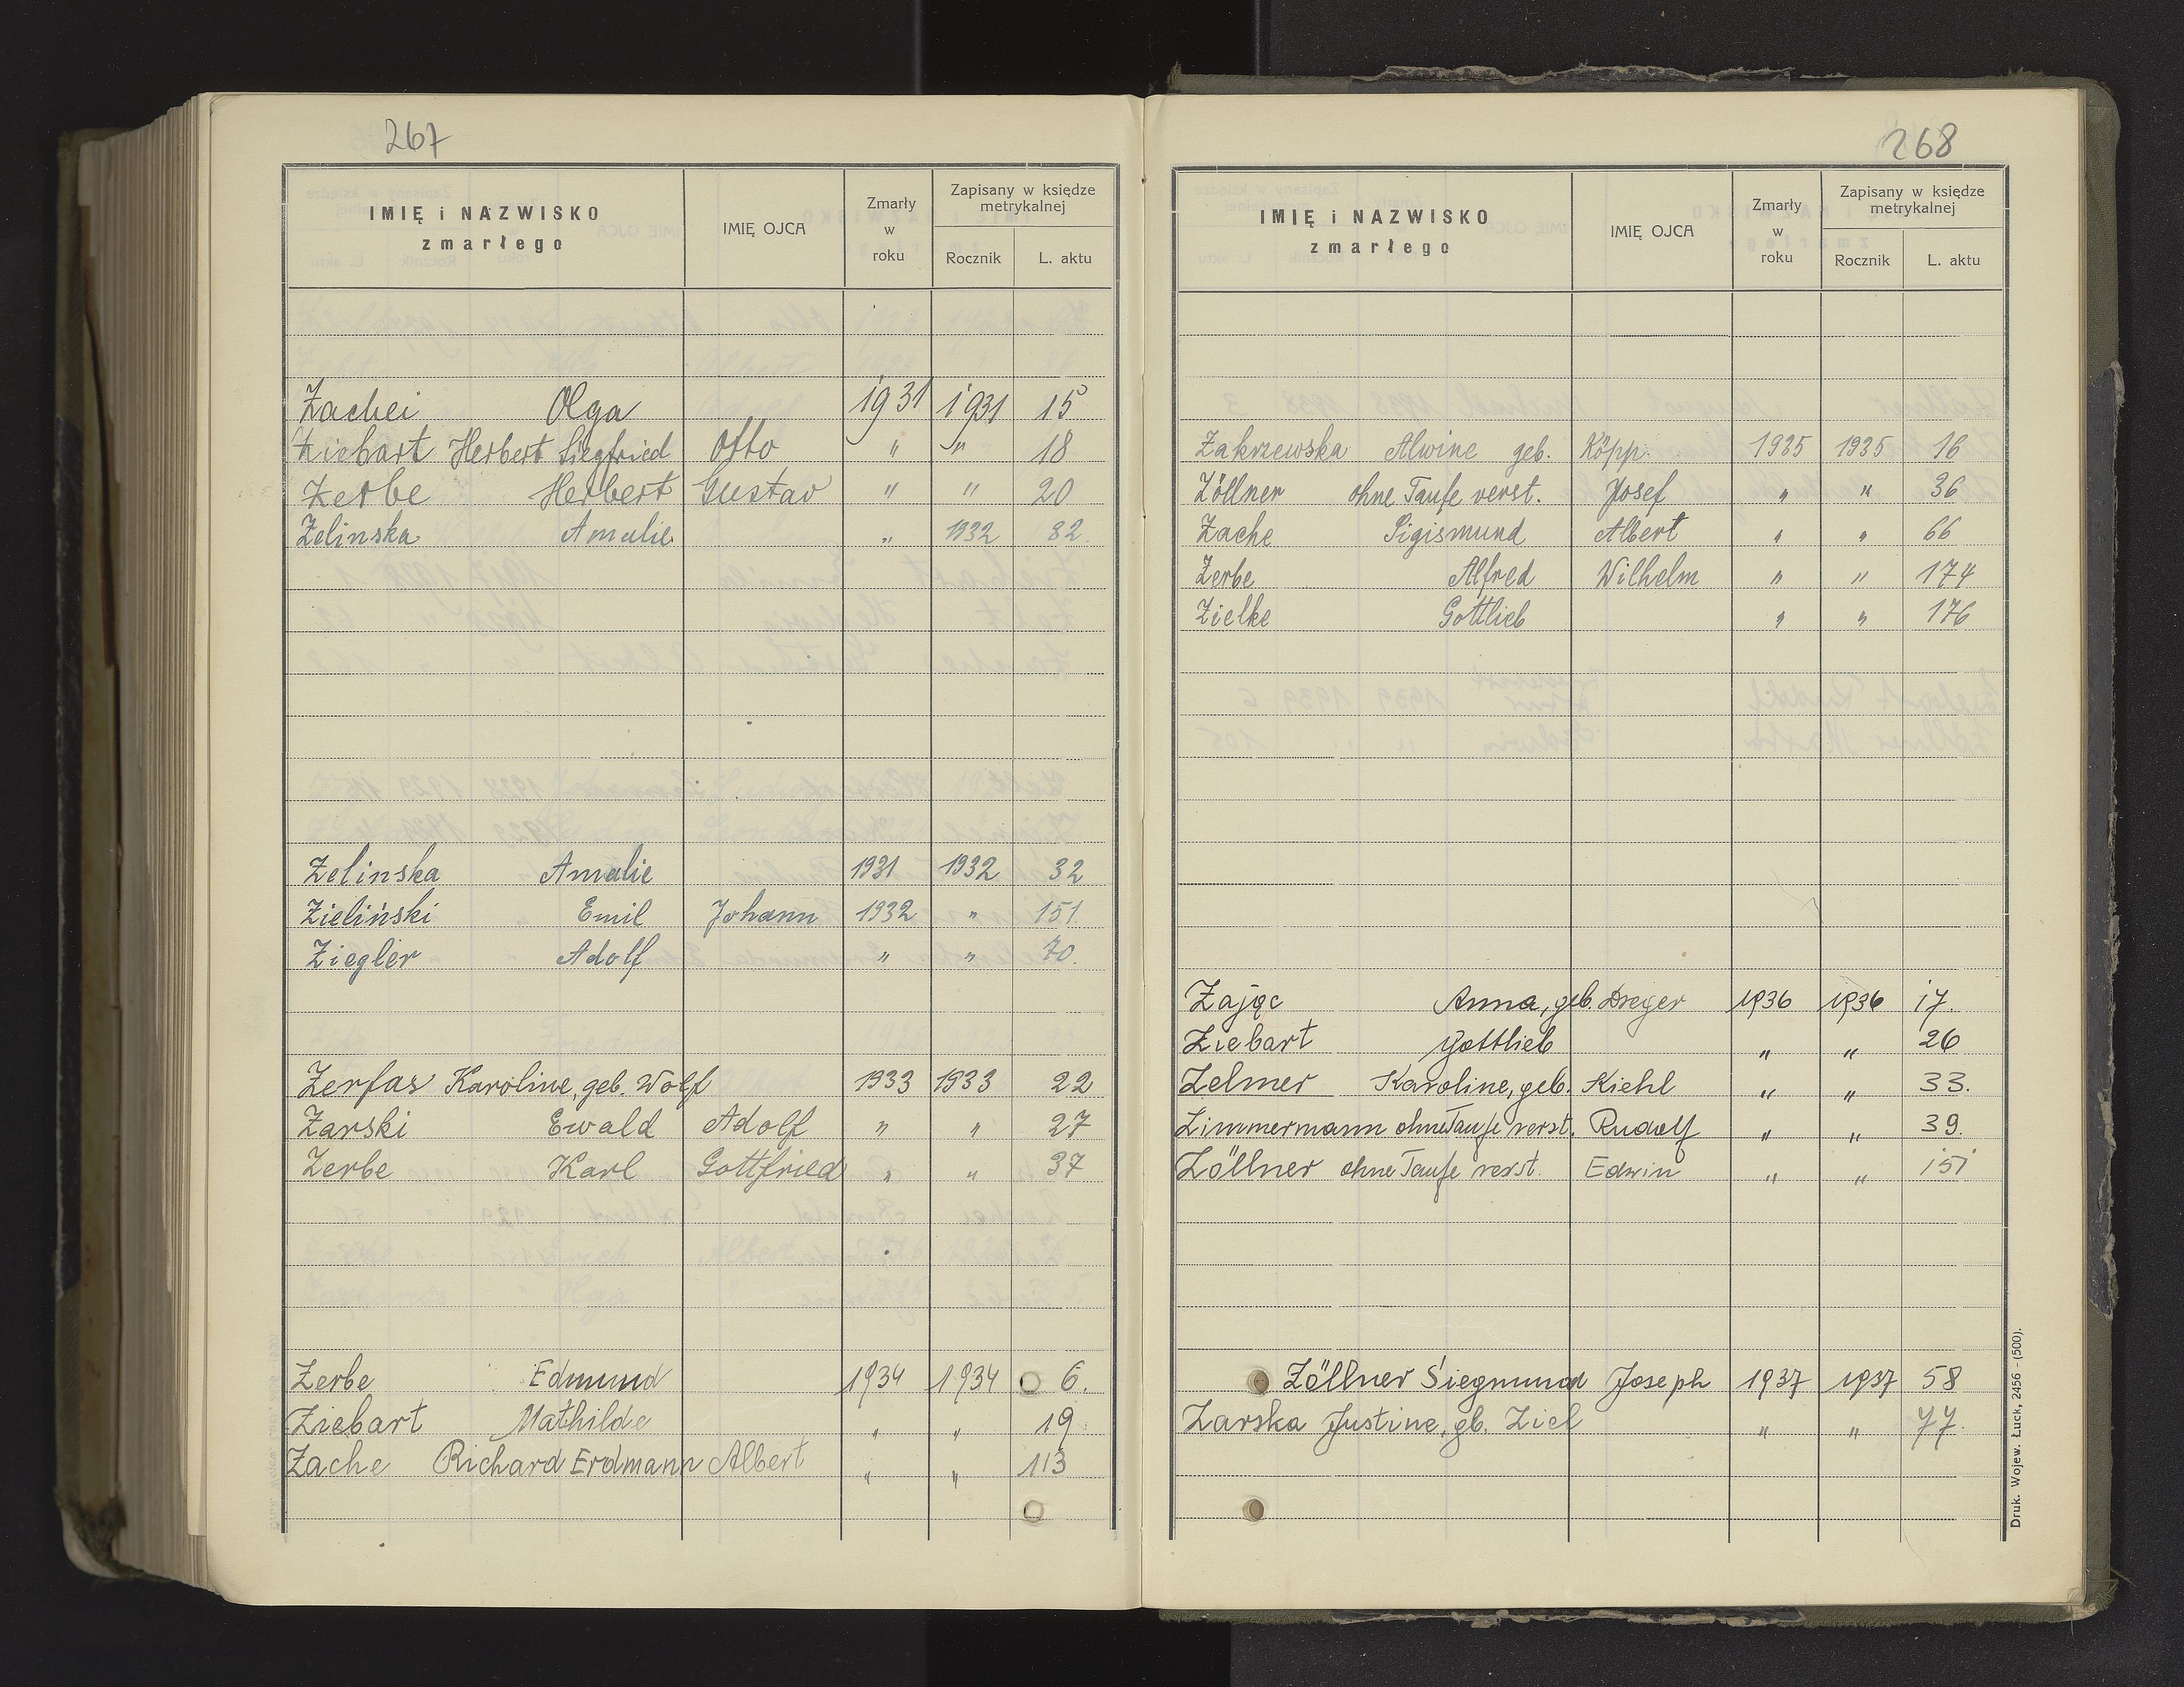 267
IMIĘ i NAZWISKO zmarłego IMIĘ OJCA Zmarły w roku Zapisany w księdze metrykalnej Rocznik L. aktu
Zachei Olga 1931 1931 15
Ziebart Herbert Siegfried Otto " " 18
Zerbe Herbert Gustav " " 20
Zelinska Amalie " 1932 32
Zelinska Amalie 1931 1932 32
Zieliński Emil Johann 1932 " 151.
Ziegler Adolf " " 70.
Zerfas Karoline, geb. Wolf 1933 1933 22
Zarski Ewald Adolf " " 27
Zerbe Karl Gottfried " " 37
Zerbe Edmund 1934 1934 6.
Ziebart Mathilde " " 19
Zache Richard Erdmann Albert " " 113
268
IMIĘ i NAZWISKO zmarłego IMIĘ OJCA Zmarły w roku Zapisany w księdze metrykalnej Rocznik L. aktu
Zakrzewska Alwine geb. Köpp. 1935 1935 16
Zöllner ohne Taufe verst. Josef " " 36
Zache Sigismund Albert " " 66
Zerbe Alfred Wilhelm " " 174
Zielke Gottlieb " " 176
Zając Anna, geb. Dreger 1936 1936 17.
Ziebart Gottlieb " " 26
Zelmer Karoline, geb. Kiehl " " 33.
Zimmermann ohne Taufe verst. Rudolf " " 39.
Zöllner ohne Taufe verst. Edwin " " 151
Zöllner Siegmund Joseph 1937 1937 58
Zarska Justine, gb. Ziel " " 77.
Druk. Wojew. Łuck, 2456 - (500).